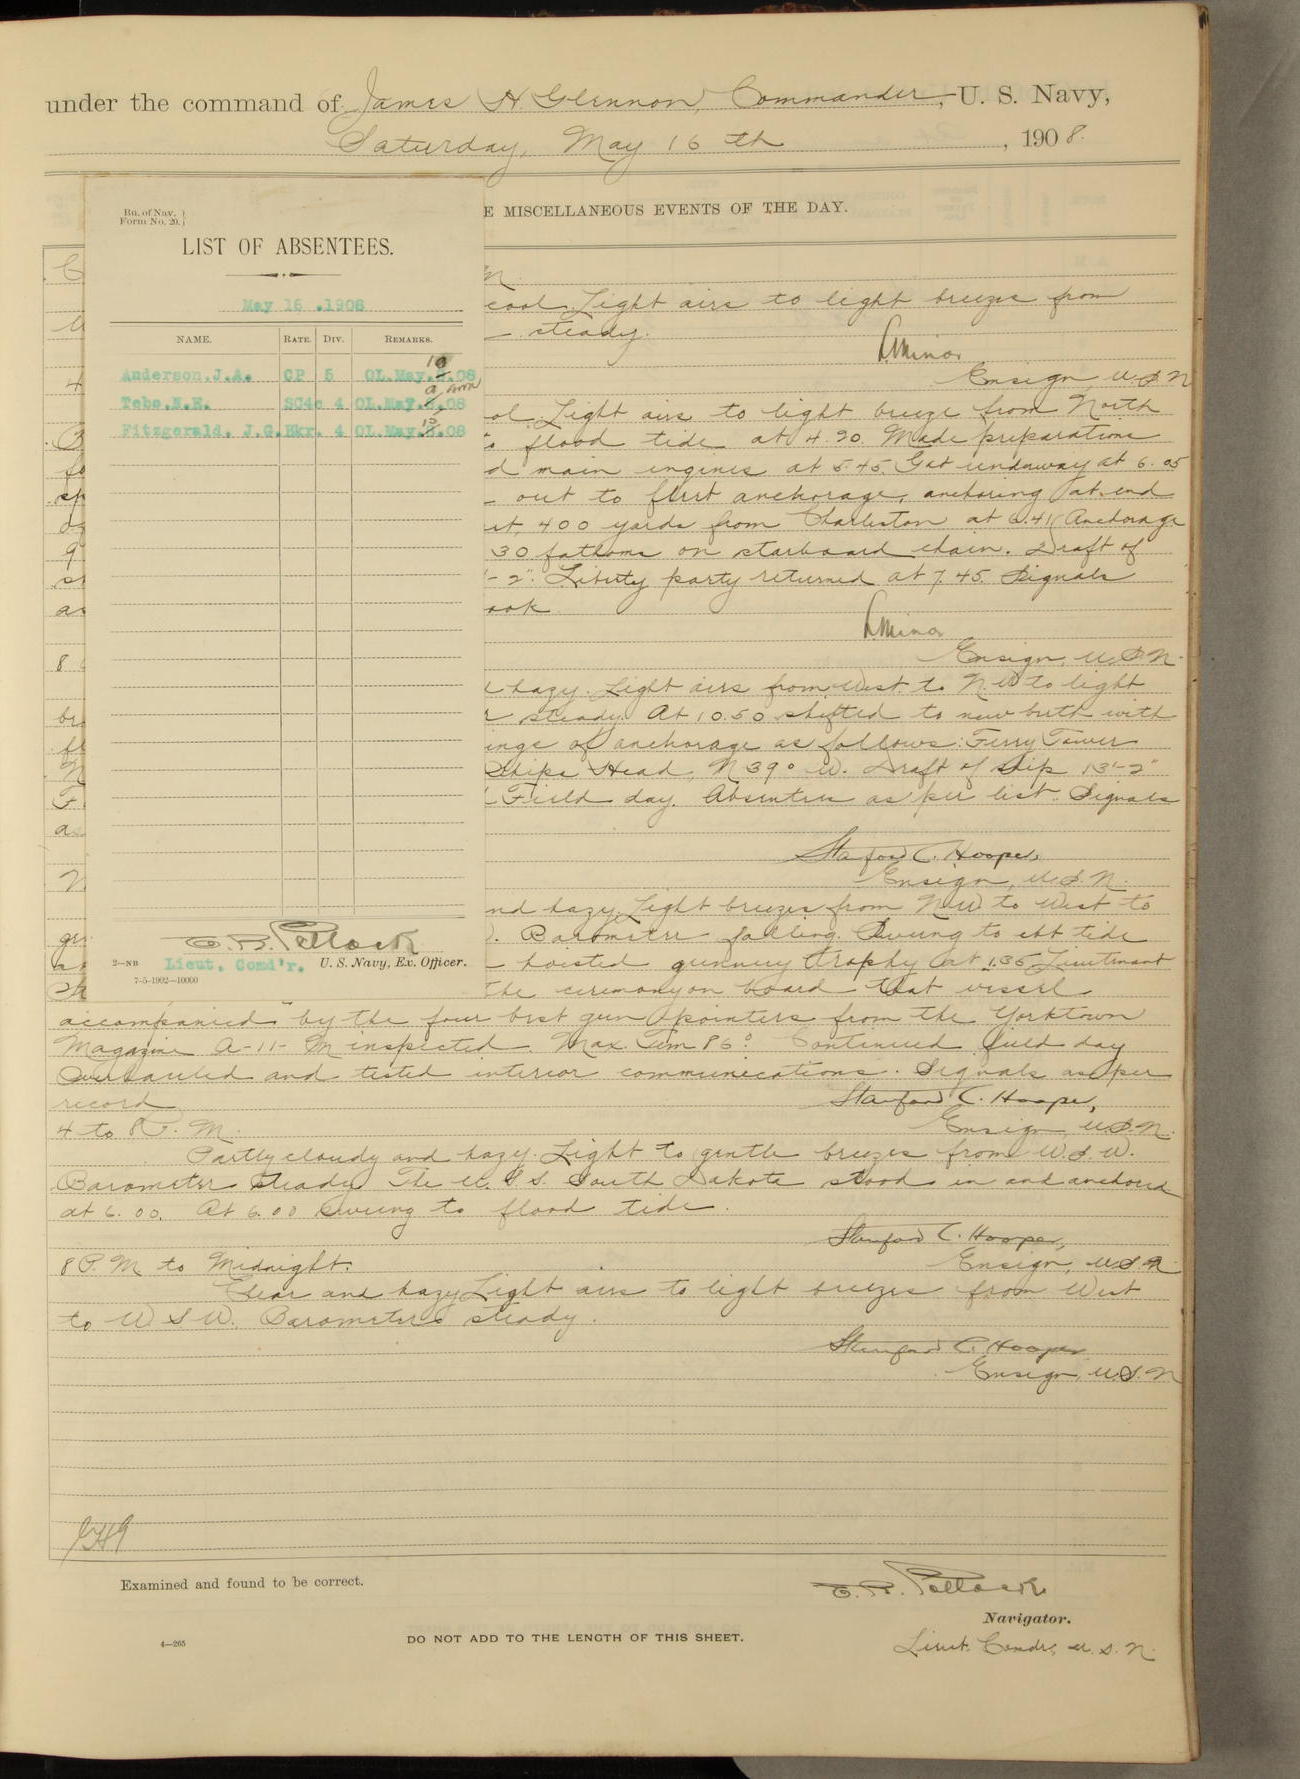 under the command of James H. Glennon, Commander, U. S. Navy,
Saturday, May 16th, 1908.
E MISCELLANEOUS EVENTS OF THE DAY.
Bu. of Nav.
Form No. 20.
LIST OF ABSENTEES.
May 16 .1908
NAME. RATE. DIV. REMARKS.
Anderson.J.A. CP 5 OL.May. 10 .08
Tebo.N.E. SC4c 4 OL.May. .08
Fitzgerald, J.G. Bkr. 4 OL.May. .08
E. R. Pollock
2—NB Lieut. Comd'r. U. S. Navy, Ex. Officer.
7-5-1902—10000
M.
cool. Light airs to light breezes from
steady.
L. Minor
Ensign, U.S.N
ol. Light airs to light breeze from North
to flood tide at 4.20. Made preparations
d main engines at 5.45. Got underway at 6.05
out to first anchorage, anchoring at end
st, 400 yards from Charleston at 6.41 Anchorage
30 fathoms on starboard chain. Draft of
-2". Liberty party returned at 7.45. Signals
L. Minor
8
Ensign, U.S.N.
hazy. Light airs from West to N.W to light
r steady. At 10.50 shifted to new berth with
ings of anchorage as follows: Ferry Tower
Ships Head, N 39° W. Draft of ship 13'-2"
Field day. Absentees as per list. Signals
Stanford C. Hooper,
Ensign, U.S.N.
nd hazy. Light breezes from NW to West to
. Barometer falling. Swung to ebb tide
hoisted gunnery trophy at 1.35 Lieutenant
the ceremony on board that vessel
accompanied by the four best gun pointers from the Yorktown
Magazine A-11-M inspected. Max. Tem 86°. Continued field day
Overhauled and tested interior communications. Signals as per
record
Stanford C. Hooper,
4 to 8 P. M.
Ensign, U.S.N.
Partly cloudy and hazy. Light to gentle breezes from W.S.W.
Barometer steady. The U.S.S. South Dakota stood in and anchored
at 6.00. At 6.00 swung to flood tide.
Stanford C. Hooper,
8 P.M to Midnight.
Ensign, U.S.N
Clear and hazy. Light airs to light breezes from West
to W S W. Barometer steady.
Stanford C. Hooper
Ensign, U.S.N
Examined and found to be correct.
E. R. Pollock
Navigator.
4—265
DO NOT ADD TO THE LENGTH OF THIS SHEET.
Lieut. Comdr, U. S. N.